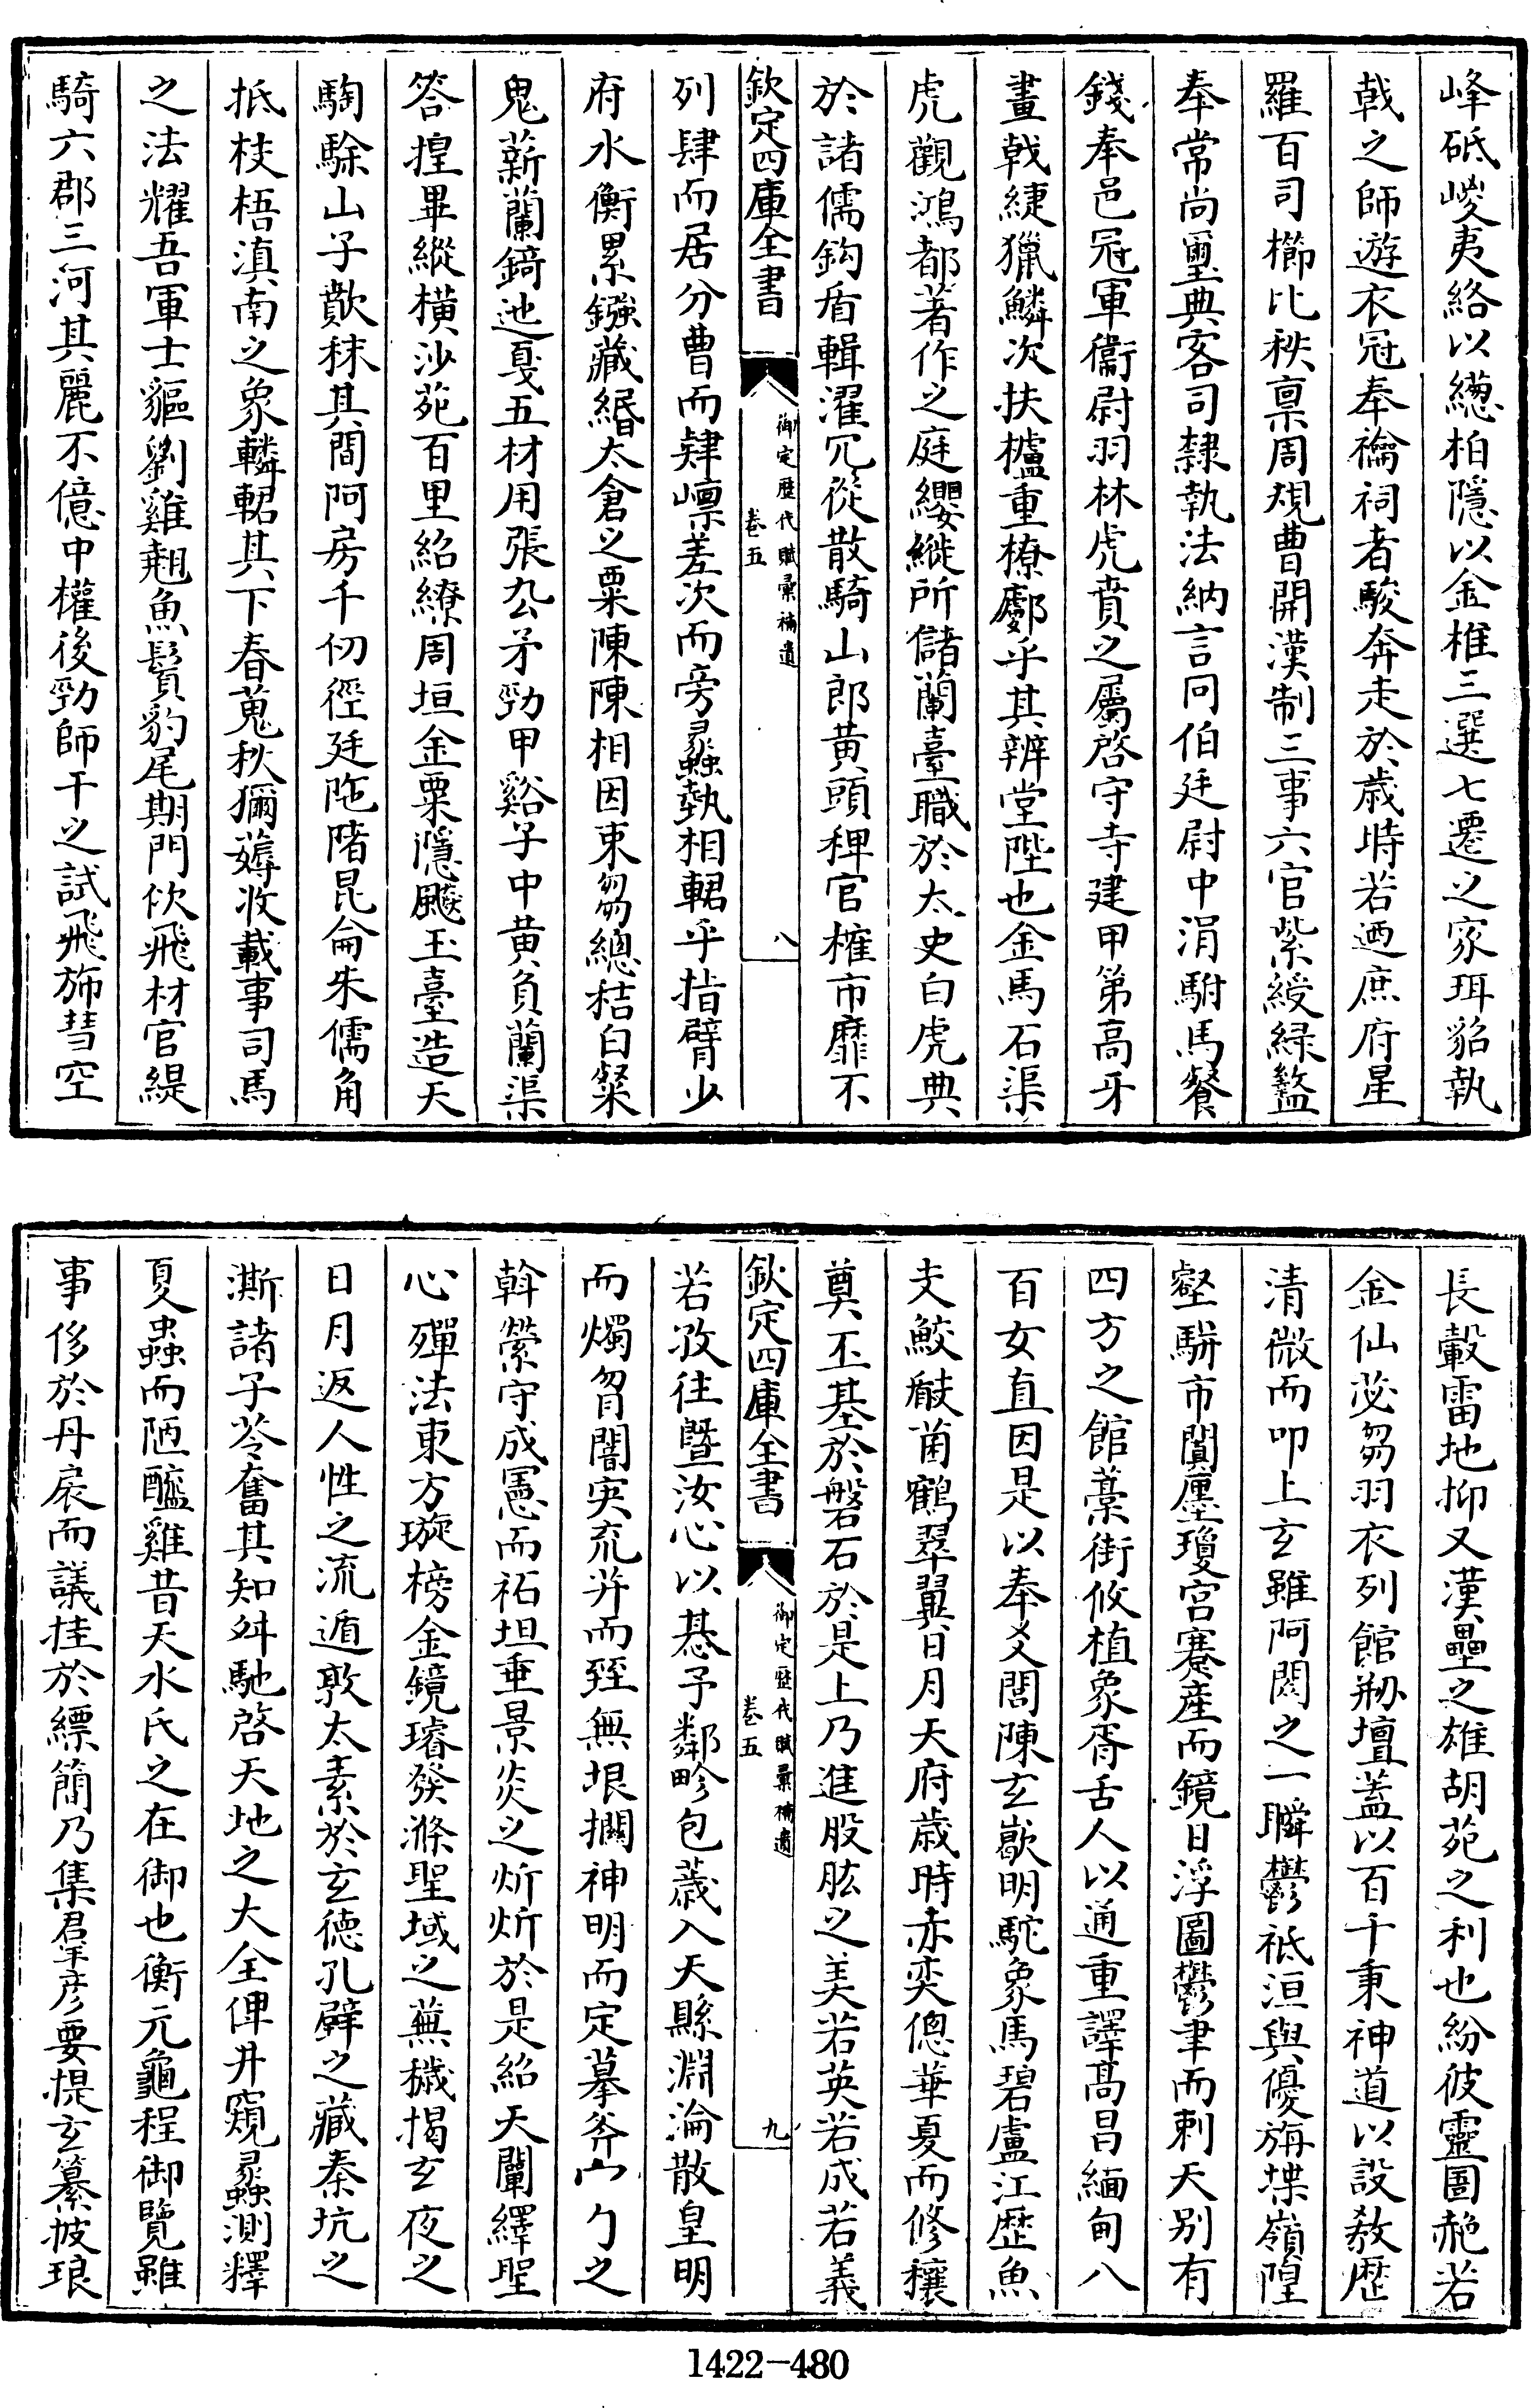 峰砥崚夷絡以繐柏隱以金椎三選七遷之家珥貂執
戟之師遊衣冠奉禴祠者駿奔走於歳時若迺庶府星
羅百司櫛比秩禀周規曹開漢制三事六官紫綬緑盭
奉常尚璽典客司隸執法納言冏伯廷尉中涓駙馬餐
錢奉邑冠軍衞尉羽林虎賁之屬啓守寺建甲第高牙
畫戟緁獵鱗次扶櫨重橑鄜乎其辨堂陛也金馬石渠
虎觀鴻都著作之庭纓縰所儲蘭臺職於太史白虎典
於諸儒鈎盾輯濯冗從散騎山郎黄頭稗官榷市靡不
欽定四庫全書
御定歴代賦彚補遺
卷五
八
列肆而居分曹而肄㠥差次而旁蠡埶相輑乎指臂少
府水衡累鏹藏緡太倉之粟陳陳相因束芻總秸白粲
鬼薪蘭錡迆戛五材用張厹矛勁甲谿子中黄負蘭渠
答揘畢縱横沙苑百里紹繚周垣金粟隱飇玉臺造天
騊駼山子歕秣其間阿房千仞徑廷陁陼昆侖朱儒角
抵枝梧滇南之象轔輑其下春蒐秋獮薅收載事司馬
之法耀吾軍士貙劉雞翹魚鬚豹尾期門佽飛材官緹
騎六郡三河其麗不億中權後勁師干之試飛斾彗空
長轂雷地抑又漢壘之雄胡苑之利也紛彼靈圄赩若
金仙苾芻羽衣列館剏壇蓋以百千秉神道以設敎歴
清微而叩上玄雖阿閦之一瞬鬱祇洹與優旃堞嶺隍
壑駢市闐㕓瓊宫蹇産而鏡日浮圖鬱聿而刺天别有
四方之館藁街攸植象胥舌人以通重譯髙昌緬甸八
百女直因是以奉爻閭陳玄歇明駝象馬碧盧江歴魚
支鮫瞂菌鶴翠翼日月天府歳時赤奕傯華夏而修穰
奠丕基於磐石於是上乃進股肱之美若英若成若義
欽定四庫全書
御定歴代賦彚補遺
卷五
九
若孜往暨汝心以惎予鄰畛包蕆入天縣淵淪散皇明
而燭曶闇宎㐬并而臸無垠撊神明而定摹斧屵勹之
斡縈守成憲而祏坦垂景炎之炘炘於是紹天闡繹聖
心殫法東方璇榜金鏡璿發滌聖域之蕪穢揭玄夜之
日月返人性之流遁敦太素於玄徳孔壁之藏秦坑之
澌諸子苓奮其知舛馳啓天地之大全俾井窺蠡測釋
夏蟲而陋醯雞昔天水氏之在御也衡元龜程御覽雖
事侈於丹扆而議挂於縹簡乃集群彦要提玄纂披琅
1422-480